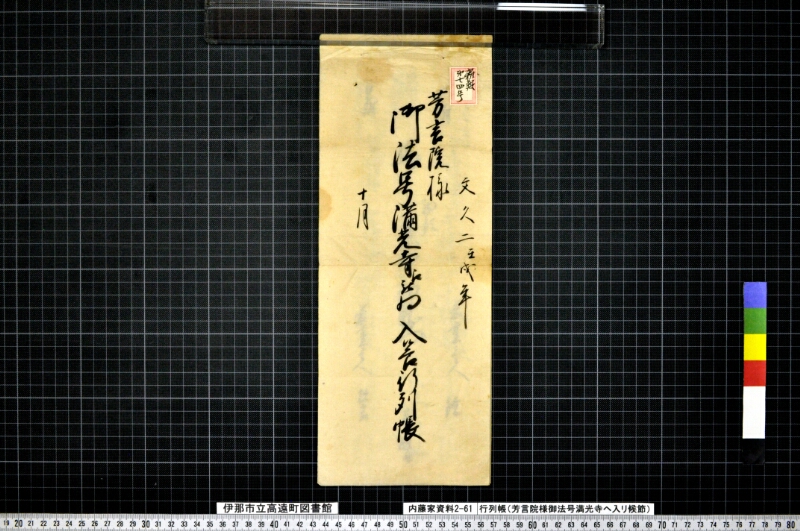 第七十四号
文久二壬戌年
芳言院様
御法号満光寺江
入
行列帳
十月
伊那市立高遠町図書館
内藤家資料2-61
行列帳(芳言院様御法号満光寺へ入リ候節)